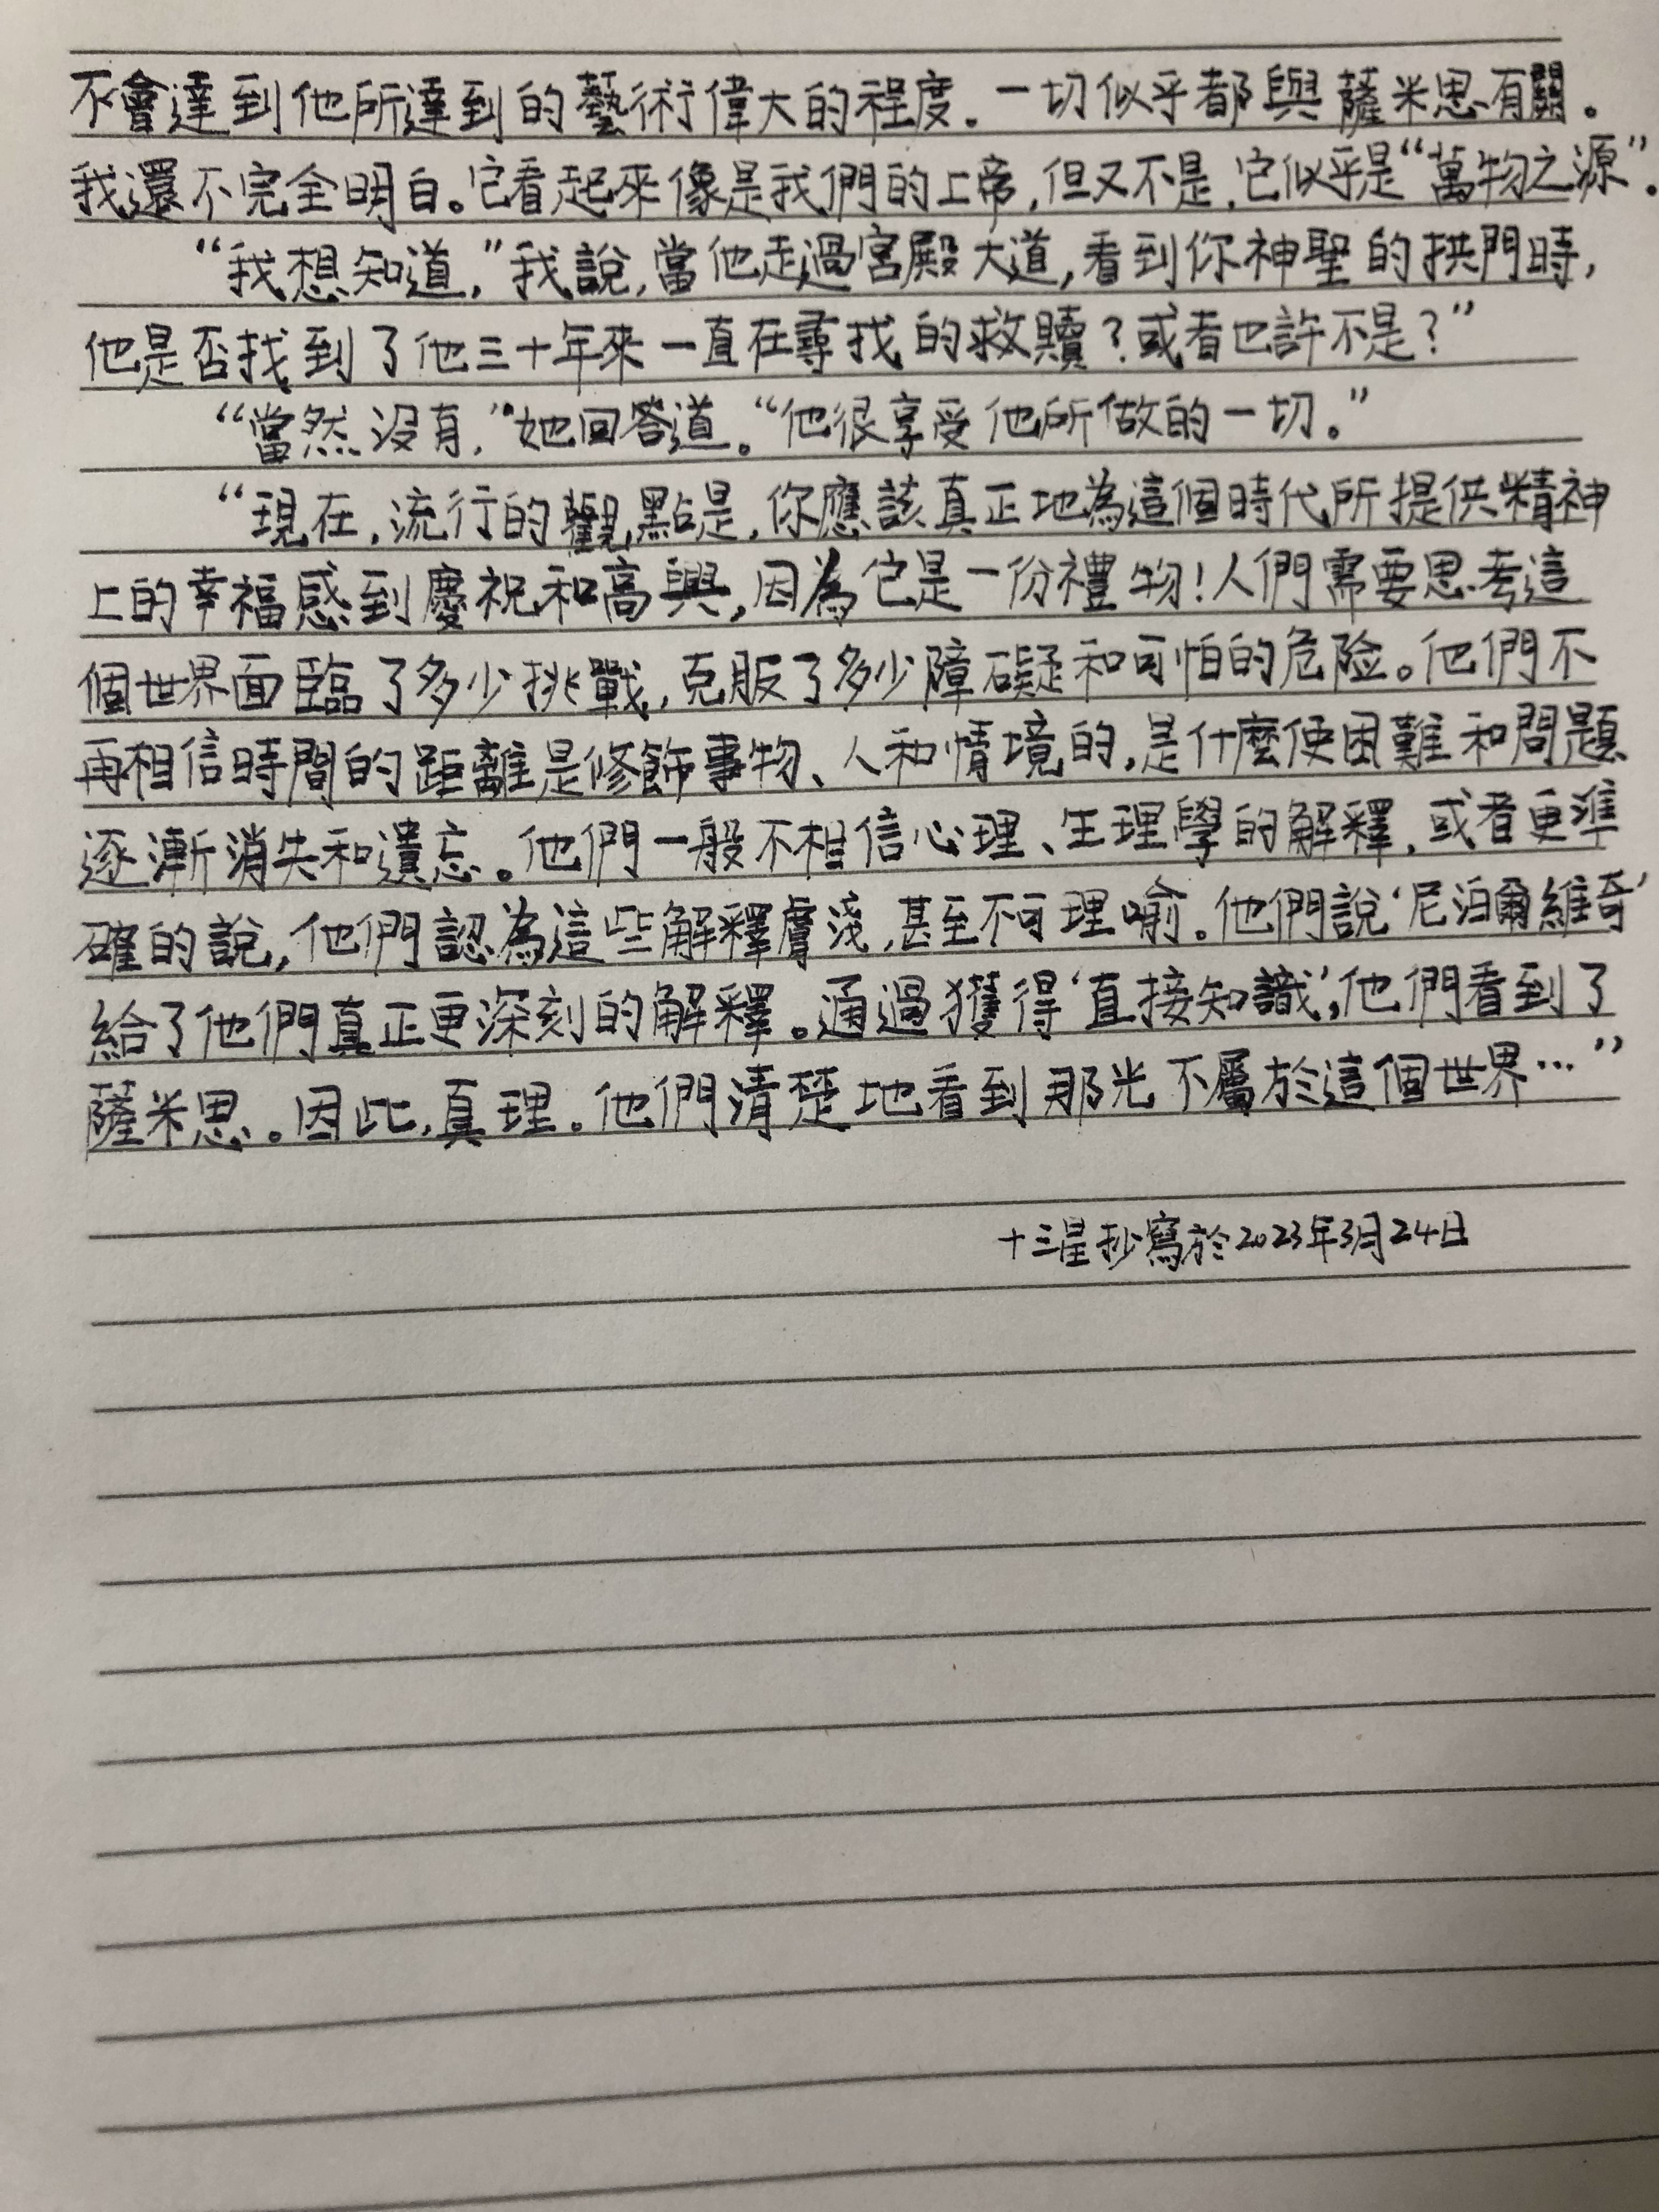 不會達到他所達到的藝術偉大的程度。一切似乎都與薩米思有關。
我還不完全明白。它看起來像是我們的上帝,但又不是,它似乎是“萬物之源”。
“我想知道,”我說,當他走過宮殿大道,看到你神聖的拱門時,
他是否找到了他三十年來一直在尋找的救贖?或者也許不是?”
“當然沒有,”她回答道。“他很享受他所做的一切。”
“現在,流行的觀點是,你應該真正地為這個時代所提供精神
上的幸福感到慶祝和高興,因為它是一份禮物!人們需要思考這
個世界面臨了多少挑戰,克服了多少障礙和可怕的危险。他們不
再相信時間的距離是修飾事物、人和情境的,是什麼使困難和問題
逐漸消失和遺忘。他們一般不相信心理、生理學的解釋,或者更準
確的說,他們認為這些解釋膚淺,甚至不可理喻。他們說‘尼泊爾維奇’
給了他們真正更深刻的解釋。通過獲得‘直接知識’,他們看到了
薩米思。因此,真理。他們清楚地看到那光不屬於這個世界…”
十三星抄寫於2023年3月24日